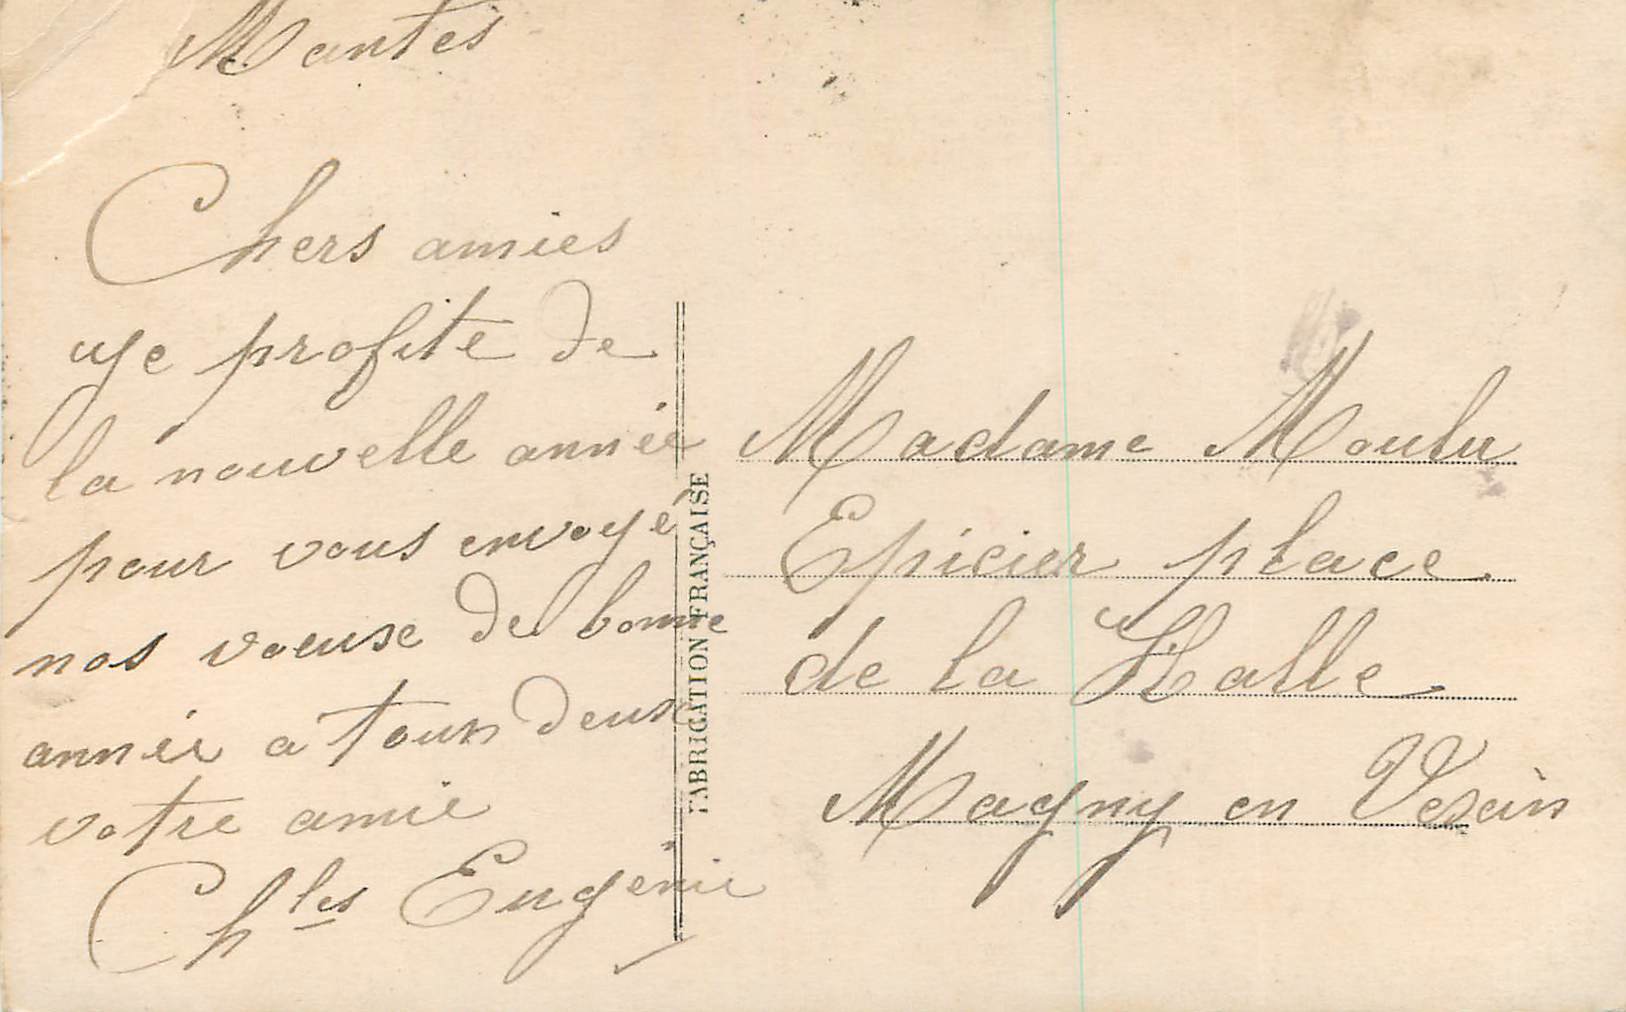 Mantes
Chers amies
je profite de
la nouvelle année
pour vous envoyé
nos voeuse de bonne
année a tous deux
votre amie
Chles Eugénie
FABRICATION FRANÇAISE
Madame Moulu
Epicier place
de la Halle
Magny en Vexin